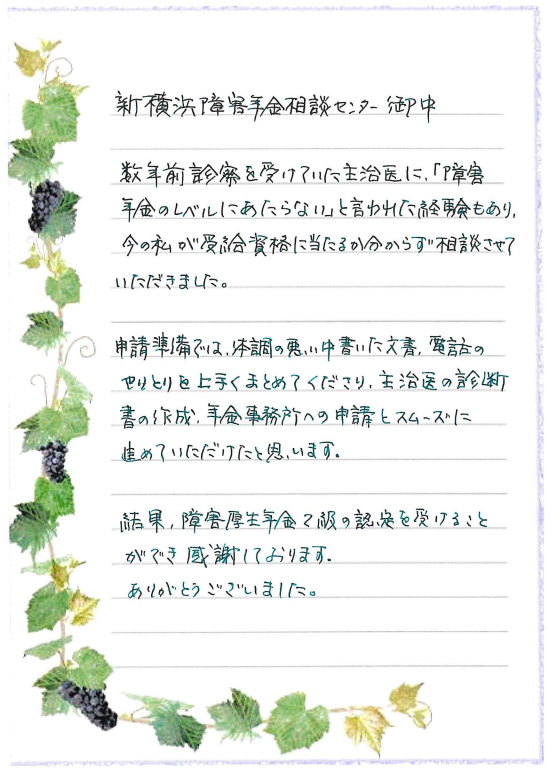 新横浜障害年金相談センター御中
数年前診察を受けていた主治医に、「障害
年金のレベルにあたらない」と言われた経験もあり、
今の私が受給資格に当たるか分からず相談させて
いただきました。
申請準備では、体調の悪い中書いた文書、電話の
やりとりを上手くまとめてくださり、主治医の診断
書の作成、年金事務所への申請とスムーズに
進めていただけたと思います。
結果、障害厚生年金2級の認定を受けること
ができ感謝しております。
ありがとうございました。